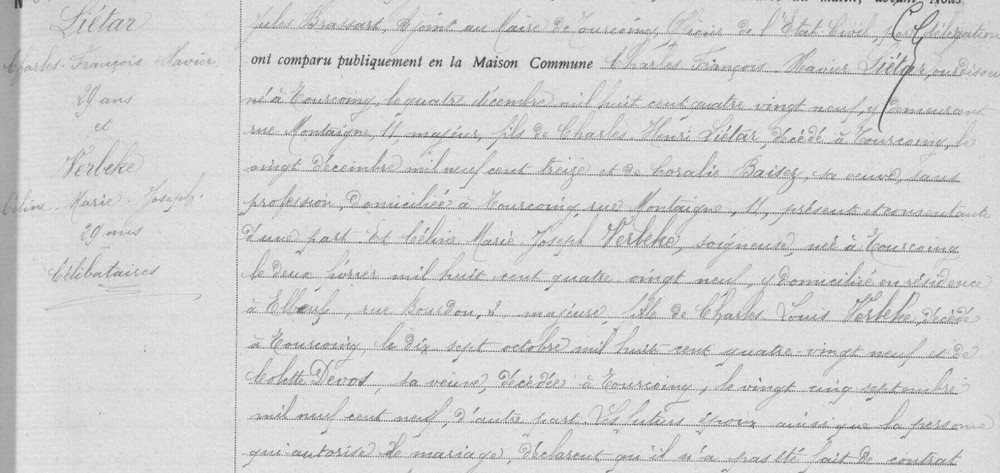 Liétar
Charles François Xavier
29 ans
et
Verbeke
Céline Marie Joseph
29 ans
Célibataires
Jules Brassart, Adjoint au Maire de Tourcoing, Officier de l'Etat Civil par délégation
ont comparu publiquement en la Maison Commune Charles François Xavier Liétar, ourdisseur
né à Tourcoing, le quatre décembre mil huit cent quatre vingt neuf, y demeurant
rue Montaigne, 11, majeur, fils de Charles Henri Liétar, décédé à Tourcoing, le
vingt décembre mil neuf cent treize et de Coralie Baisez, sa veuve, sans
profession, domiciliée à Tourcoing, rue Montaigne, 11, présente et consentante
d'une part. Et Céline Marie Joseph Verbeke, soigneuse, née à Tourcoing
le deux février mil huit cent quatre vingt neuf, y domiciliée en résidence
à Elbeuf, rue Bourdon, 2, majeure, fille de Charles Louis Verbeke, décédé
à Tourcoing, le dix sept octobre mil huit cent quatre-vingt neuf et de
Colette Devos, sa veuve, décédée à Tourcoing, le vingt cinq septembre
mil neuf cent neuf, d'autre part. Les futurs époux ainsi que la personne
qui autorise le mariage, déclarent qu'il n'a pas été fait de contrat